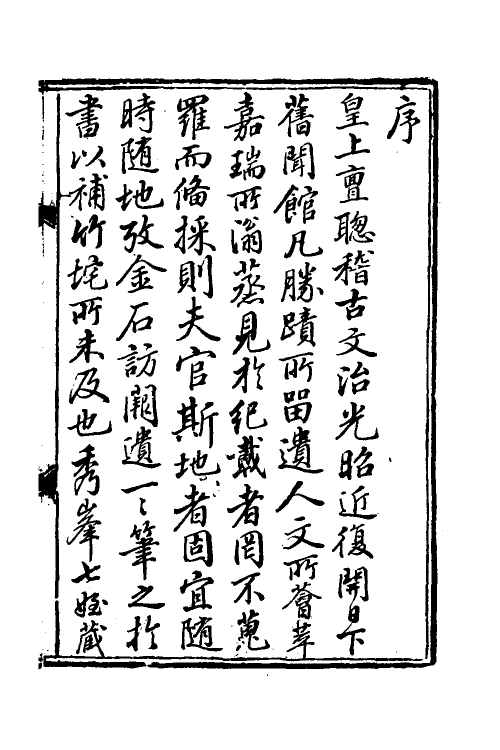 序
皇上亶聰稽古文治光昭近復開日下
舊聞館凡勝蹟所留遺人文所薈萃
嘉瑞所滃蒸見於紀載者罔不蒐
羅而俻採則夫官斯地者固宜随
時随地攷金石訪闕遺一〻筆之於
書以補竹垞所未及也秀峯七姪蔵